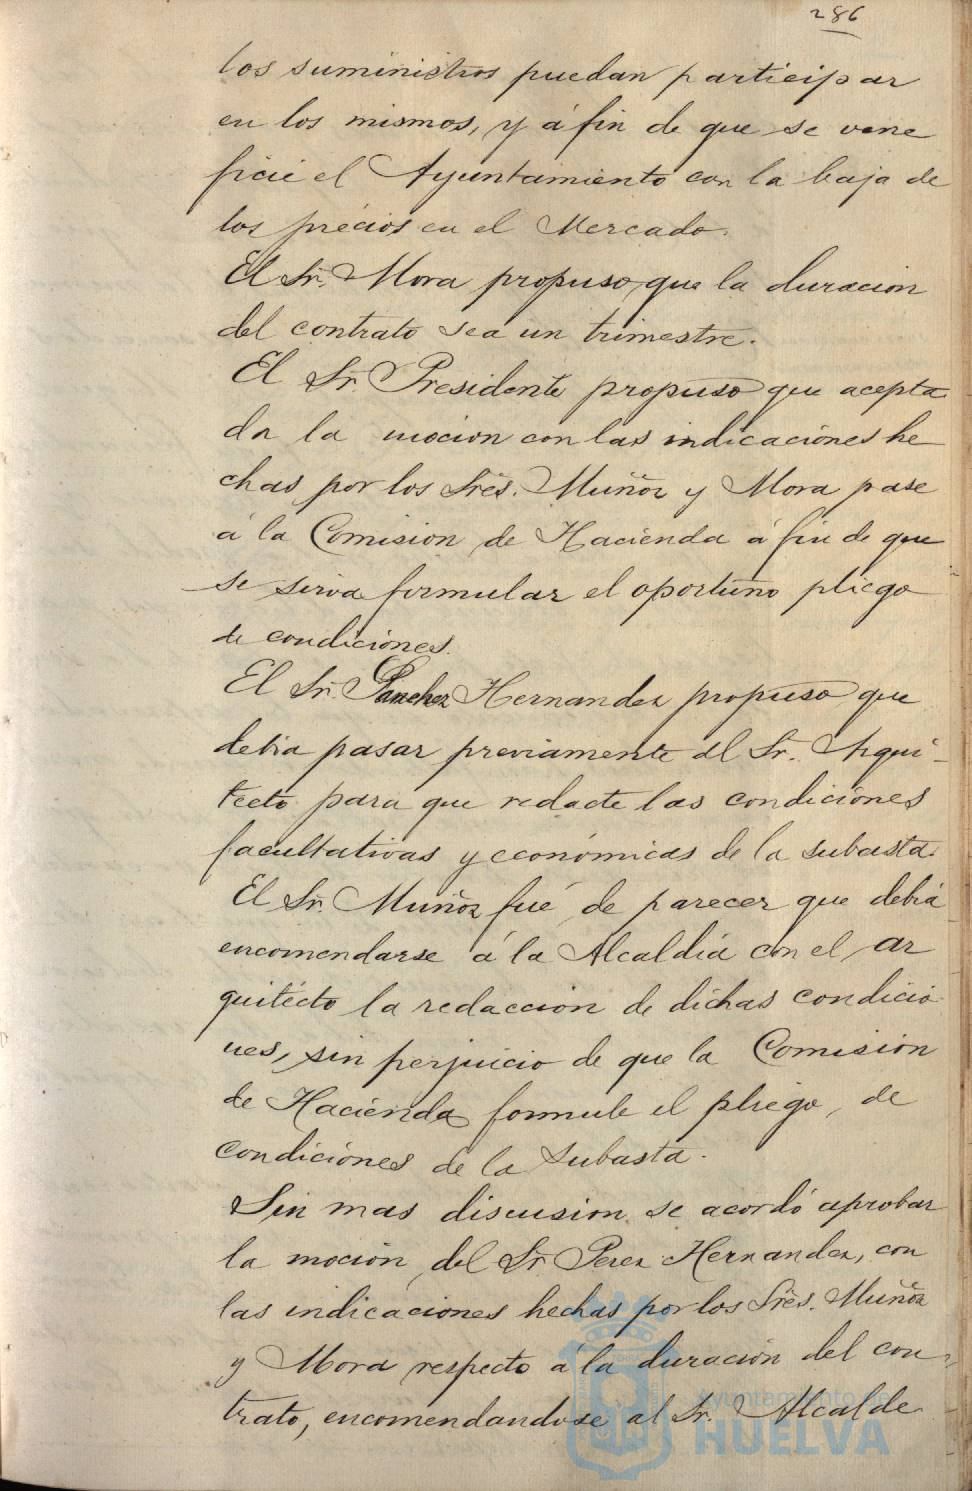 286
los suministros puedan participar
en los mismos, y á fin de que se vene
ficie el Ayuntamiento con la baja de
los précios en el Mercado.
El Sr. Mora propuso que la duracion
del contrato sea un trimestre.
El Sr. Presidente propuso que acepta
da la mocion con las indicaciónes he
chas por los Srés. Muñoz y Mora pase
á la Comision de Haciénda á fin de que
se sirva formular el oportuno pliego
de condiciónes.
El Sr. Sanchez Hernandez propuso que
debia pasar previamente al Sr. Arqui-
tecto para que redacte las condiciónes
facultativas y económicas de la subasta.
El Sr. Muñoz fué de parecer que debiá
encomendarse á la Alcaldiá con el ar
quitécto la redaccion de dichas condicio
nes, sin perjuicio de que la Comision
de Haciénda formule el pliego, de
condiciónes de la subasta.
Sin mas discusion se acordó aprobar
la moción del Sr. Perez Hernandez, con
las indicaciones hechas por los Srés. Muñoz
y Mora respecto á la duración del con-
trato, encomendandose al Sr. Alcalde
Ayuntamiento de
HUELVA